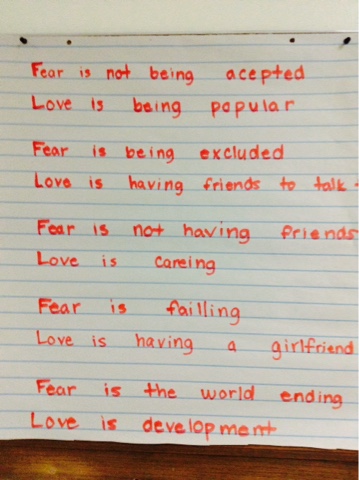 Fear is not being acepted
Love is being popular
Fear is being excluded
Love is having friends to talk
Fear is not having friends
Love is careing
Fear is failling
Love is having a girlfriend
Fear is the world ending
Love is development